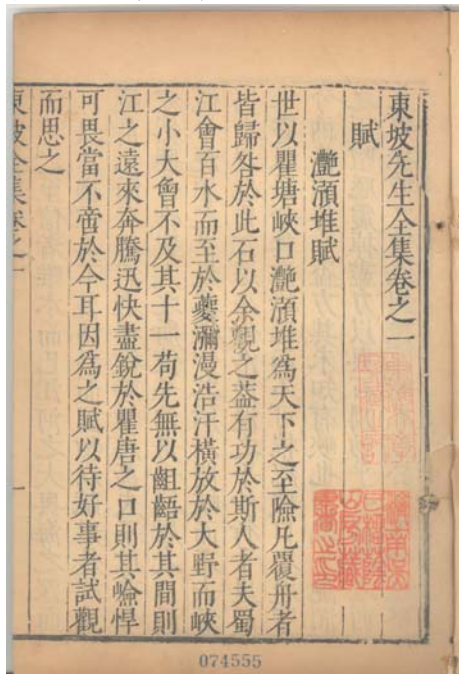 東坡先生全集卷之一
賦
灔澦堆賦
世以瞿塘峽口灔澦堆爲天下之至險凡覆舟者
皆歸咎於此石以余觀之蓋有功於斯人者夫蜀
江會百水而至於夔瀰漫浩汗橫放於大野而峽
之小大曾不及其十一苟先無以齟齬於其間則
江之遠來奔騰迅快盡銳於瞿唐之口則其嶮悍
可畏當不啻於今耳因爲之賦以待好事者試觀
而思之
東坡全集卷之一
一
074555